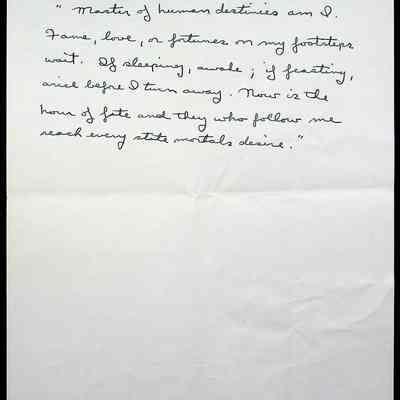 " Master of human destinies am I.
Fame, love, or fortunes on my footsteps
wait. If sleeping, awake ; if feasting,
arise before I turn away. Now is the
hour of fate and they who follow me
reach every state mortals desire."